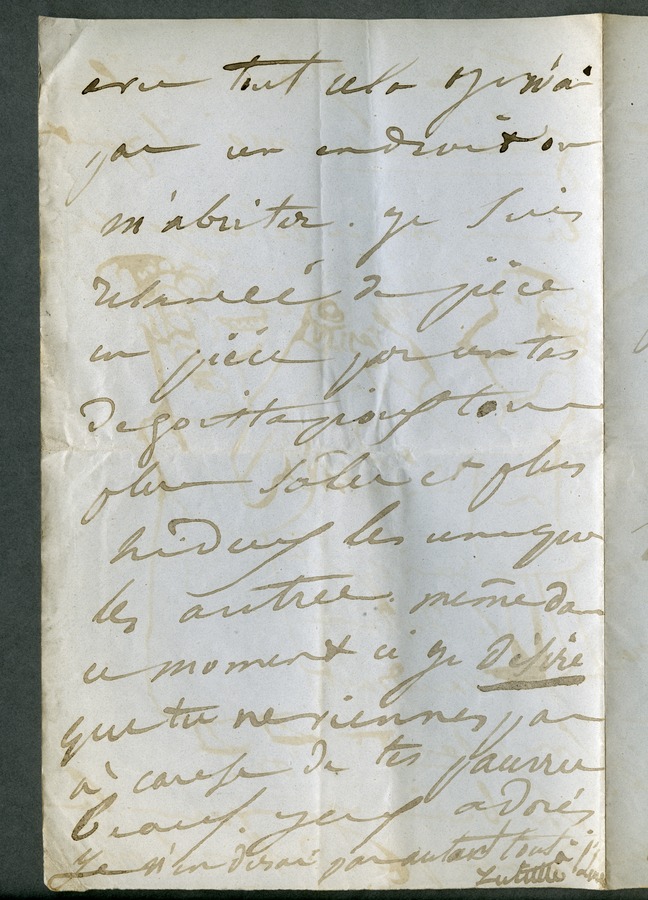 avec tout cela je n'ai
pas un endroit où
m'abriter. je suis
relancée de pièce
en pièce par un tas
de tous
plus sâles et plus
hideux les uns que
les autres. même dans
ce moment ci je désire
que tu ne viennes pas
à cause de tes pauvres
beaux yeux adorés
Je n'en dirai pas autant tout à l'heure